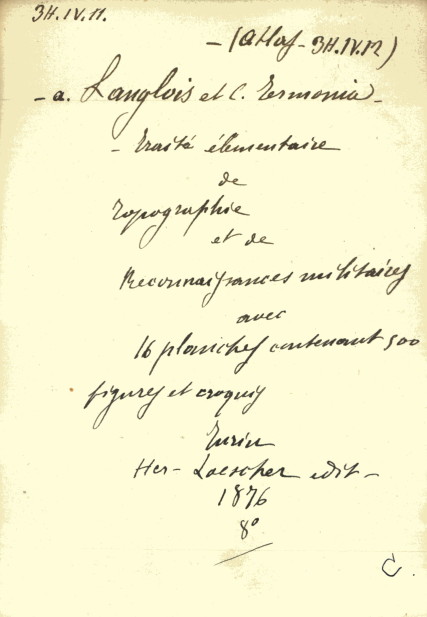 3H.IV.11.
- (Atlas - 3H.IV.12)
- A. Langlois et C. Termonia -
- Traité élementaire
de
Topographie
et de
Reconnaissances militaires
avec
16 planches contenant 500
figures et croquis
Turin
Her - Loescher edit -
1876
8°
C.